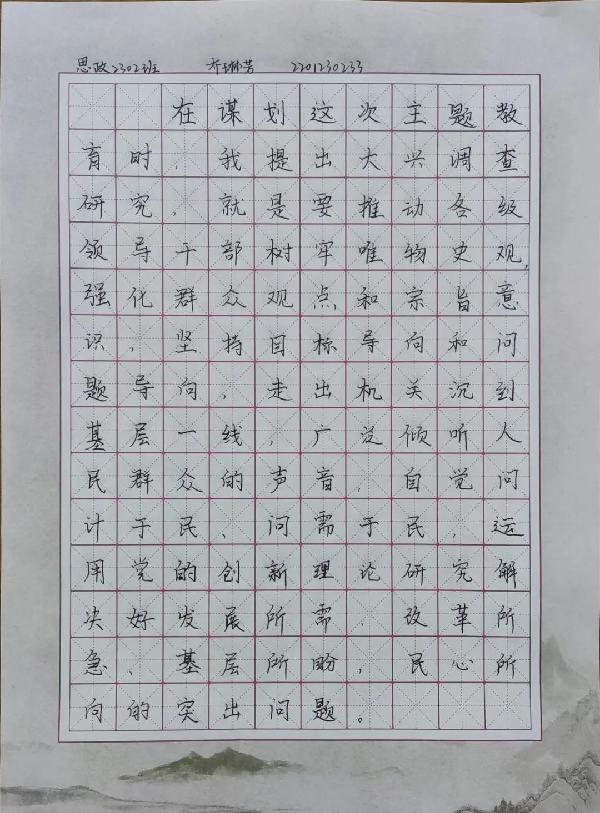 思政2302班 齐珊芸 2201230233
在谋划这次主题教
育时，我提出大兴调查
研究，就是要推动各级
领导干部树牢唯物史观，
强化群众观点和宗旨意
识，坚持目标导向和问
题导向，走出机关沉到
基层一线，广泛倾听人
民群众的声音，自觉问
计于民、问需于民，运
用党的创新理论研究解
决好发展所需、改革所
急、基层所盼、民心所
向的突出问题。